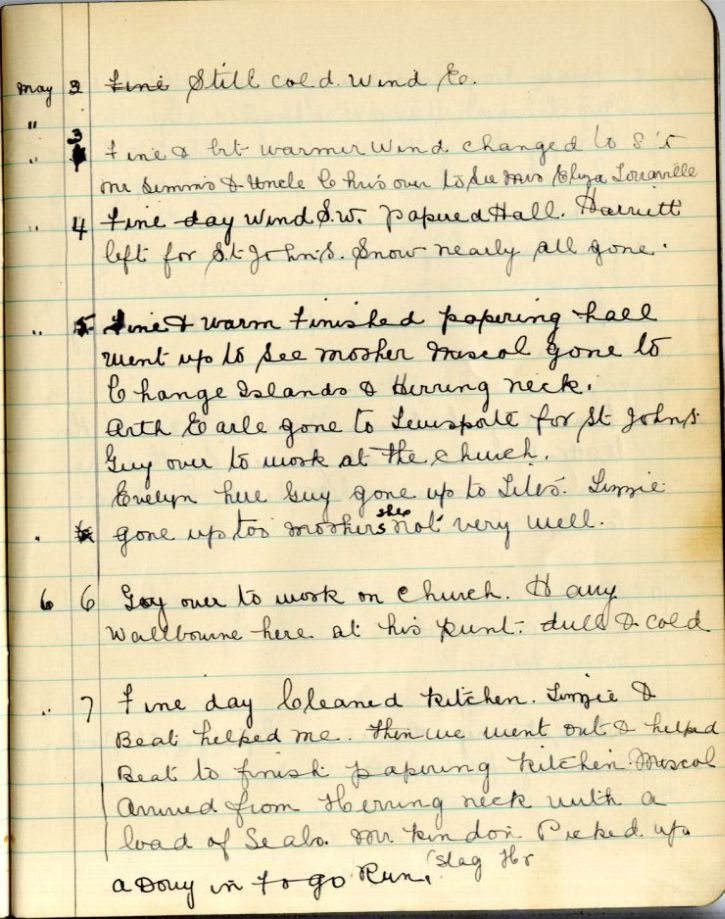 May 2 Fine Still cold. Wind E.
"
" 3 Fine & bit warmer Wind changed to S
Mr Simms & Uncle Chris over to See Mrs Eliza
" 4 Fine day Wind S.W. papered Hall. Harriett
left for St. John's. Snow nearly all gone.
" 5 Fine & warm Finished papering hall
went up to see mosher Miscol gone to
Change Islands & Herring neck.
Arth Earle gone to Lewisporte for St John's
Guy over to work at the church.
Evelyn here Guy gone up to Lizzie
gone up too Moshers shes not very well.
6 6 Guy over to work on church. Harry
Wallbourne here at his punt. dull & cold
" 7 Fine day Cleaned Kitchen. Lizzie &
Beat helped me. Then we went out & helped
Beat to finish papering Kitchen. Miscol
Arrived from Herring neck with a
load of Seals. Mr Kindon. Picked up
a Dory in Fogo Run, Stag Hr